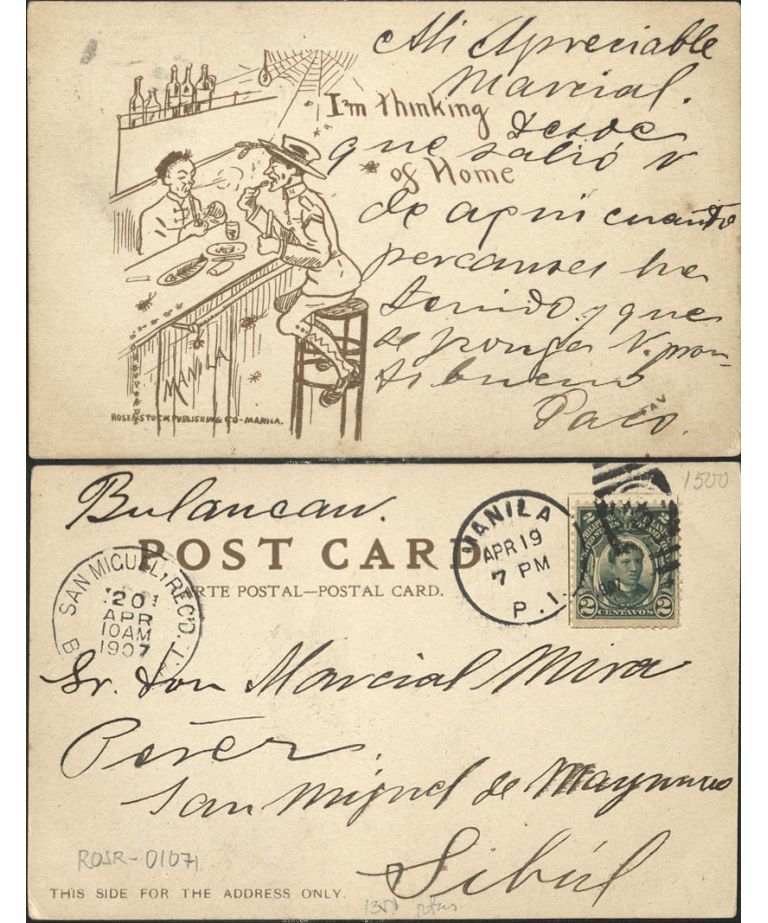 Mi Apreciable
Marcial.
I'm thinking
of Home
desde
que salió V
de aqui cuanto
percanses he
tenido y que
se ponga V. pron-
to bueno
Paco.
MANILA
ROSENSTOCK PUBLISHING CO-MANILA.
1500
Bulancan.
POST CARD
CARTE POSTAL—POSTAL CARD.
MANILA
APR 19
7 PM
P. I.
2 2
PHILIPPINE
2 CENTAVOS 2
SAN MIGUEL, REC'D.
20
APR
10AM
1907
B
Sr. Don Marcial Mira
Perer.
San Miguel de Mayumo
Sibúl
ROSR-01071
THIS SIDE FOR THE ADDRESS ONLY.